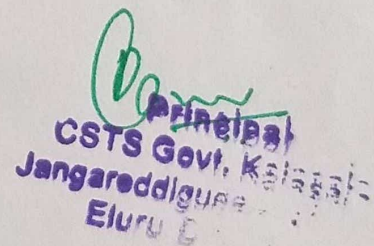 Principal
CSTS Govt. Kalasala
Jangareddigude
Eluru